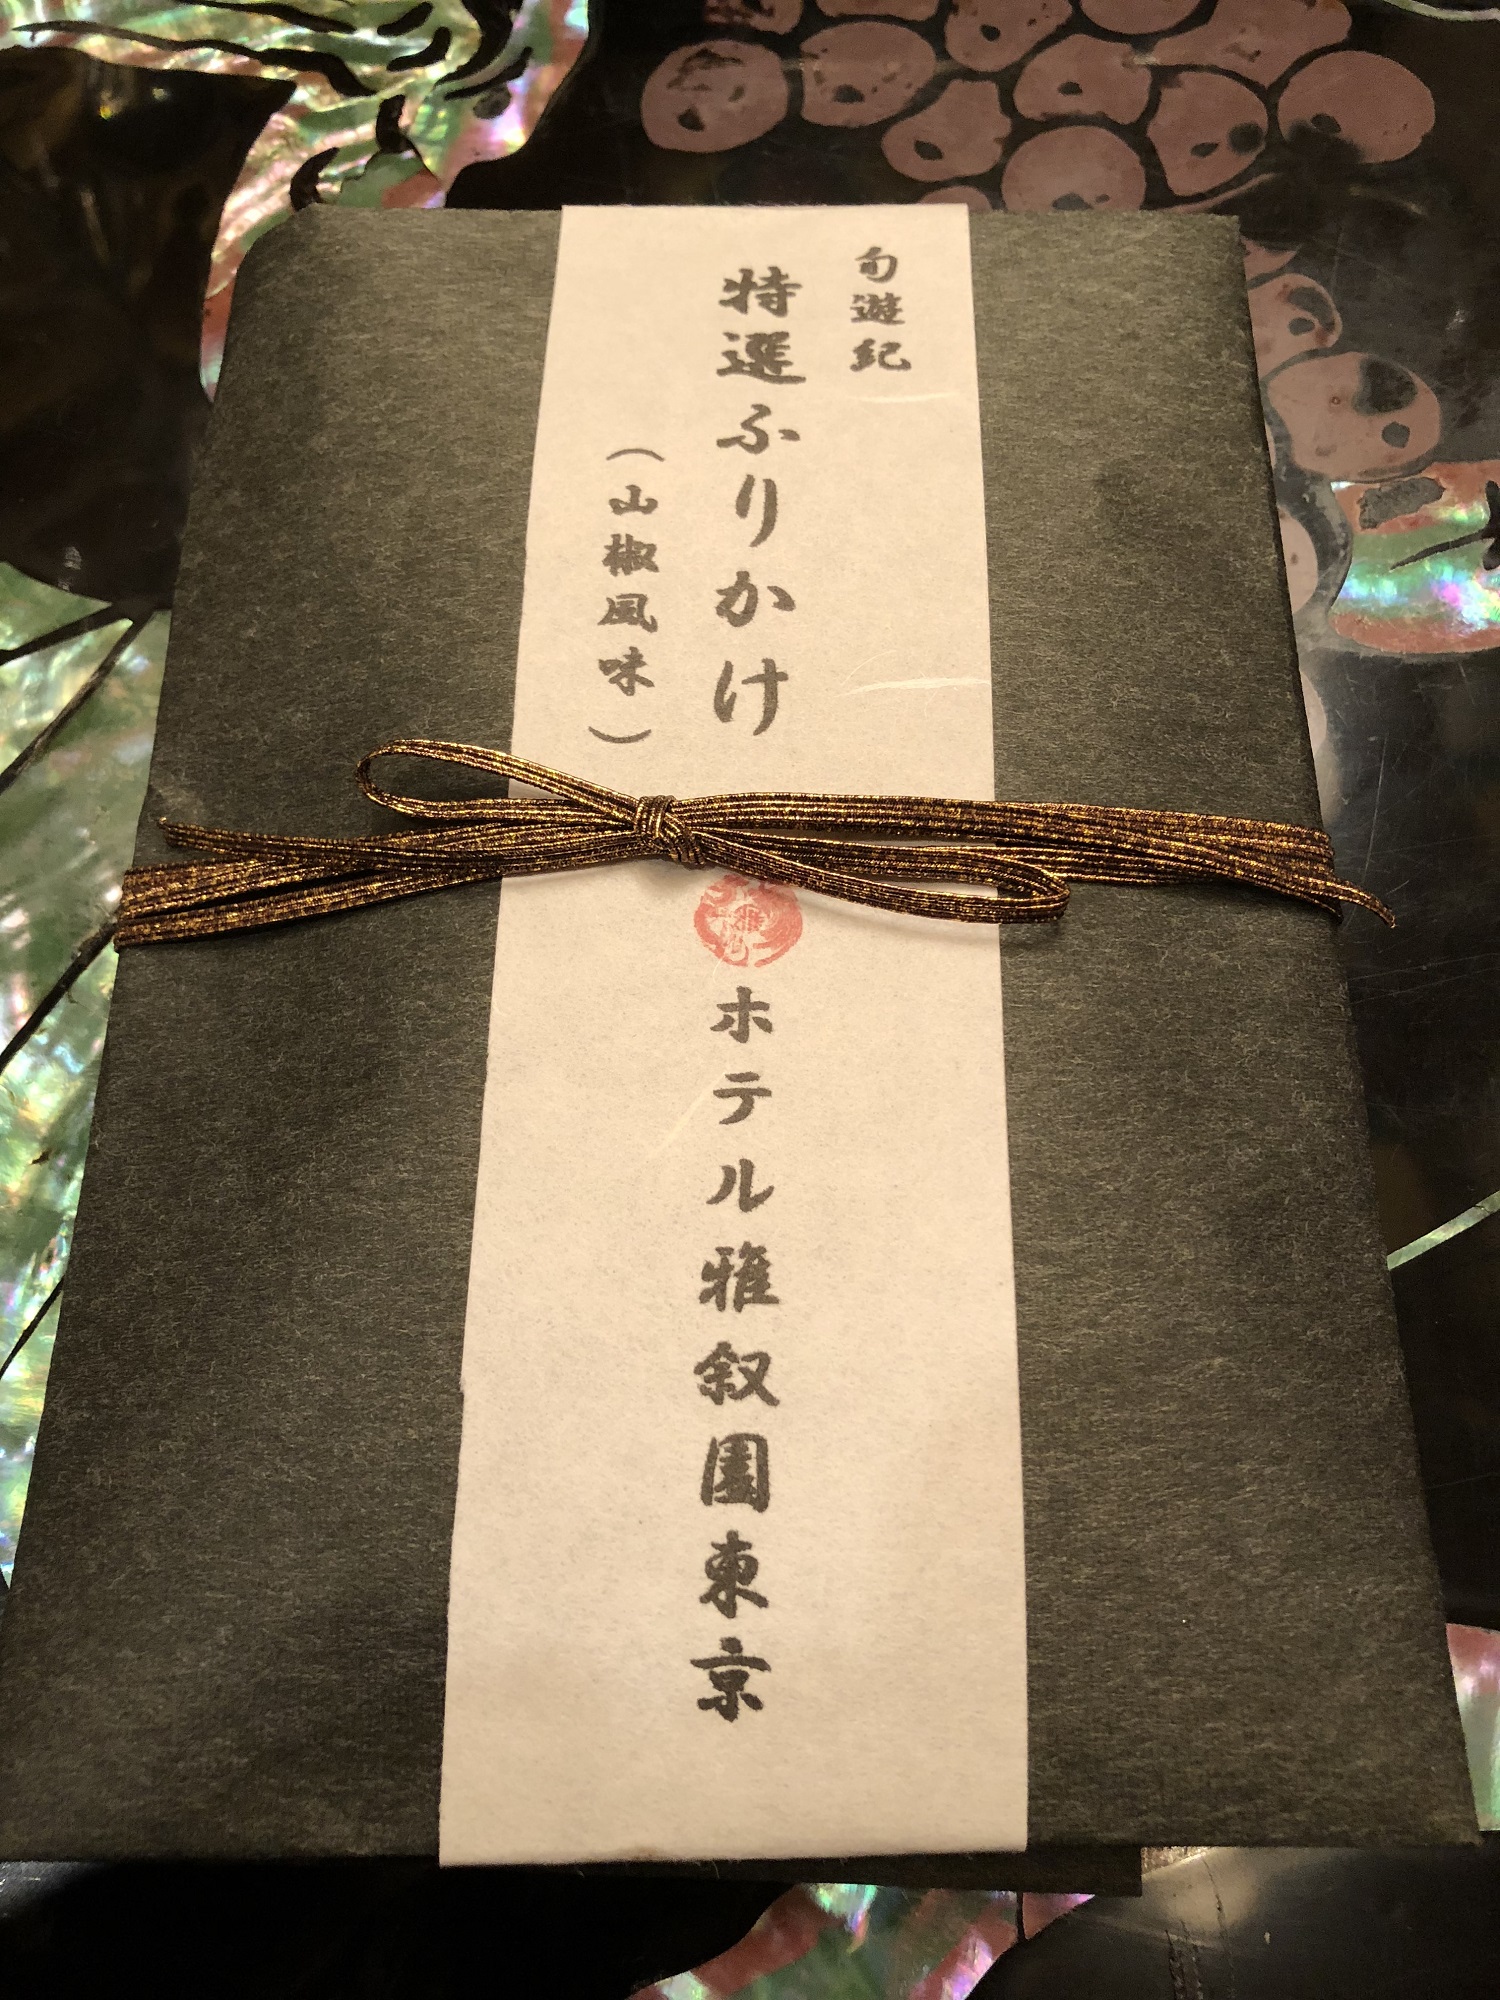 旬遊紀
特選ふりかけ
(山椒風味)
ホテル雅叙園東京